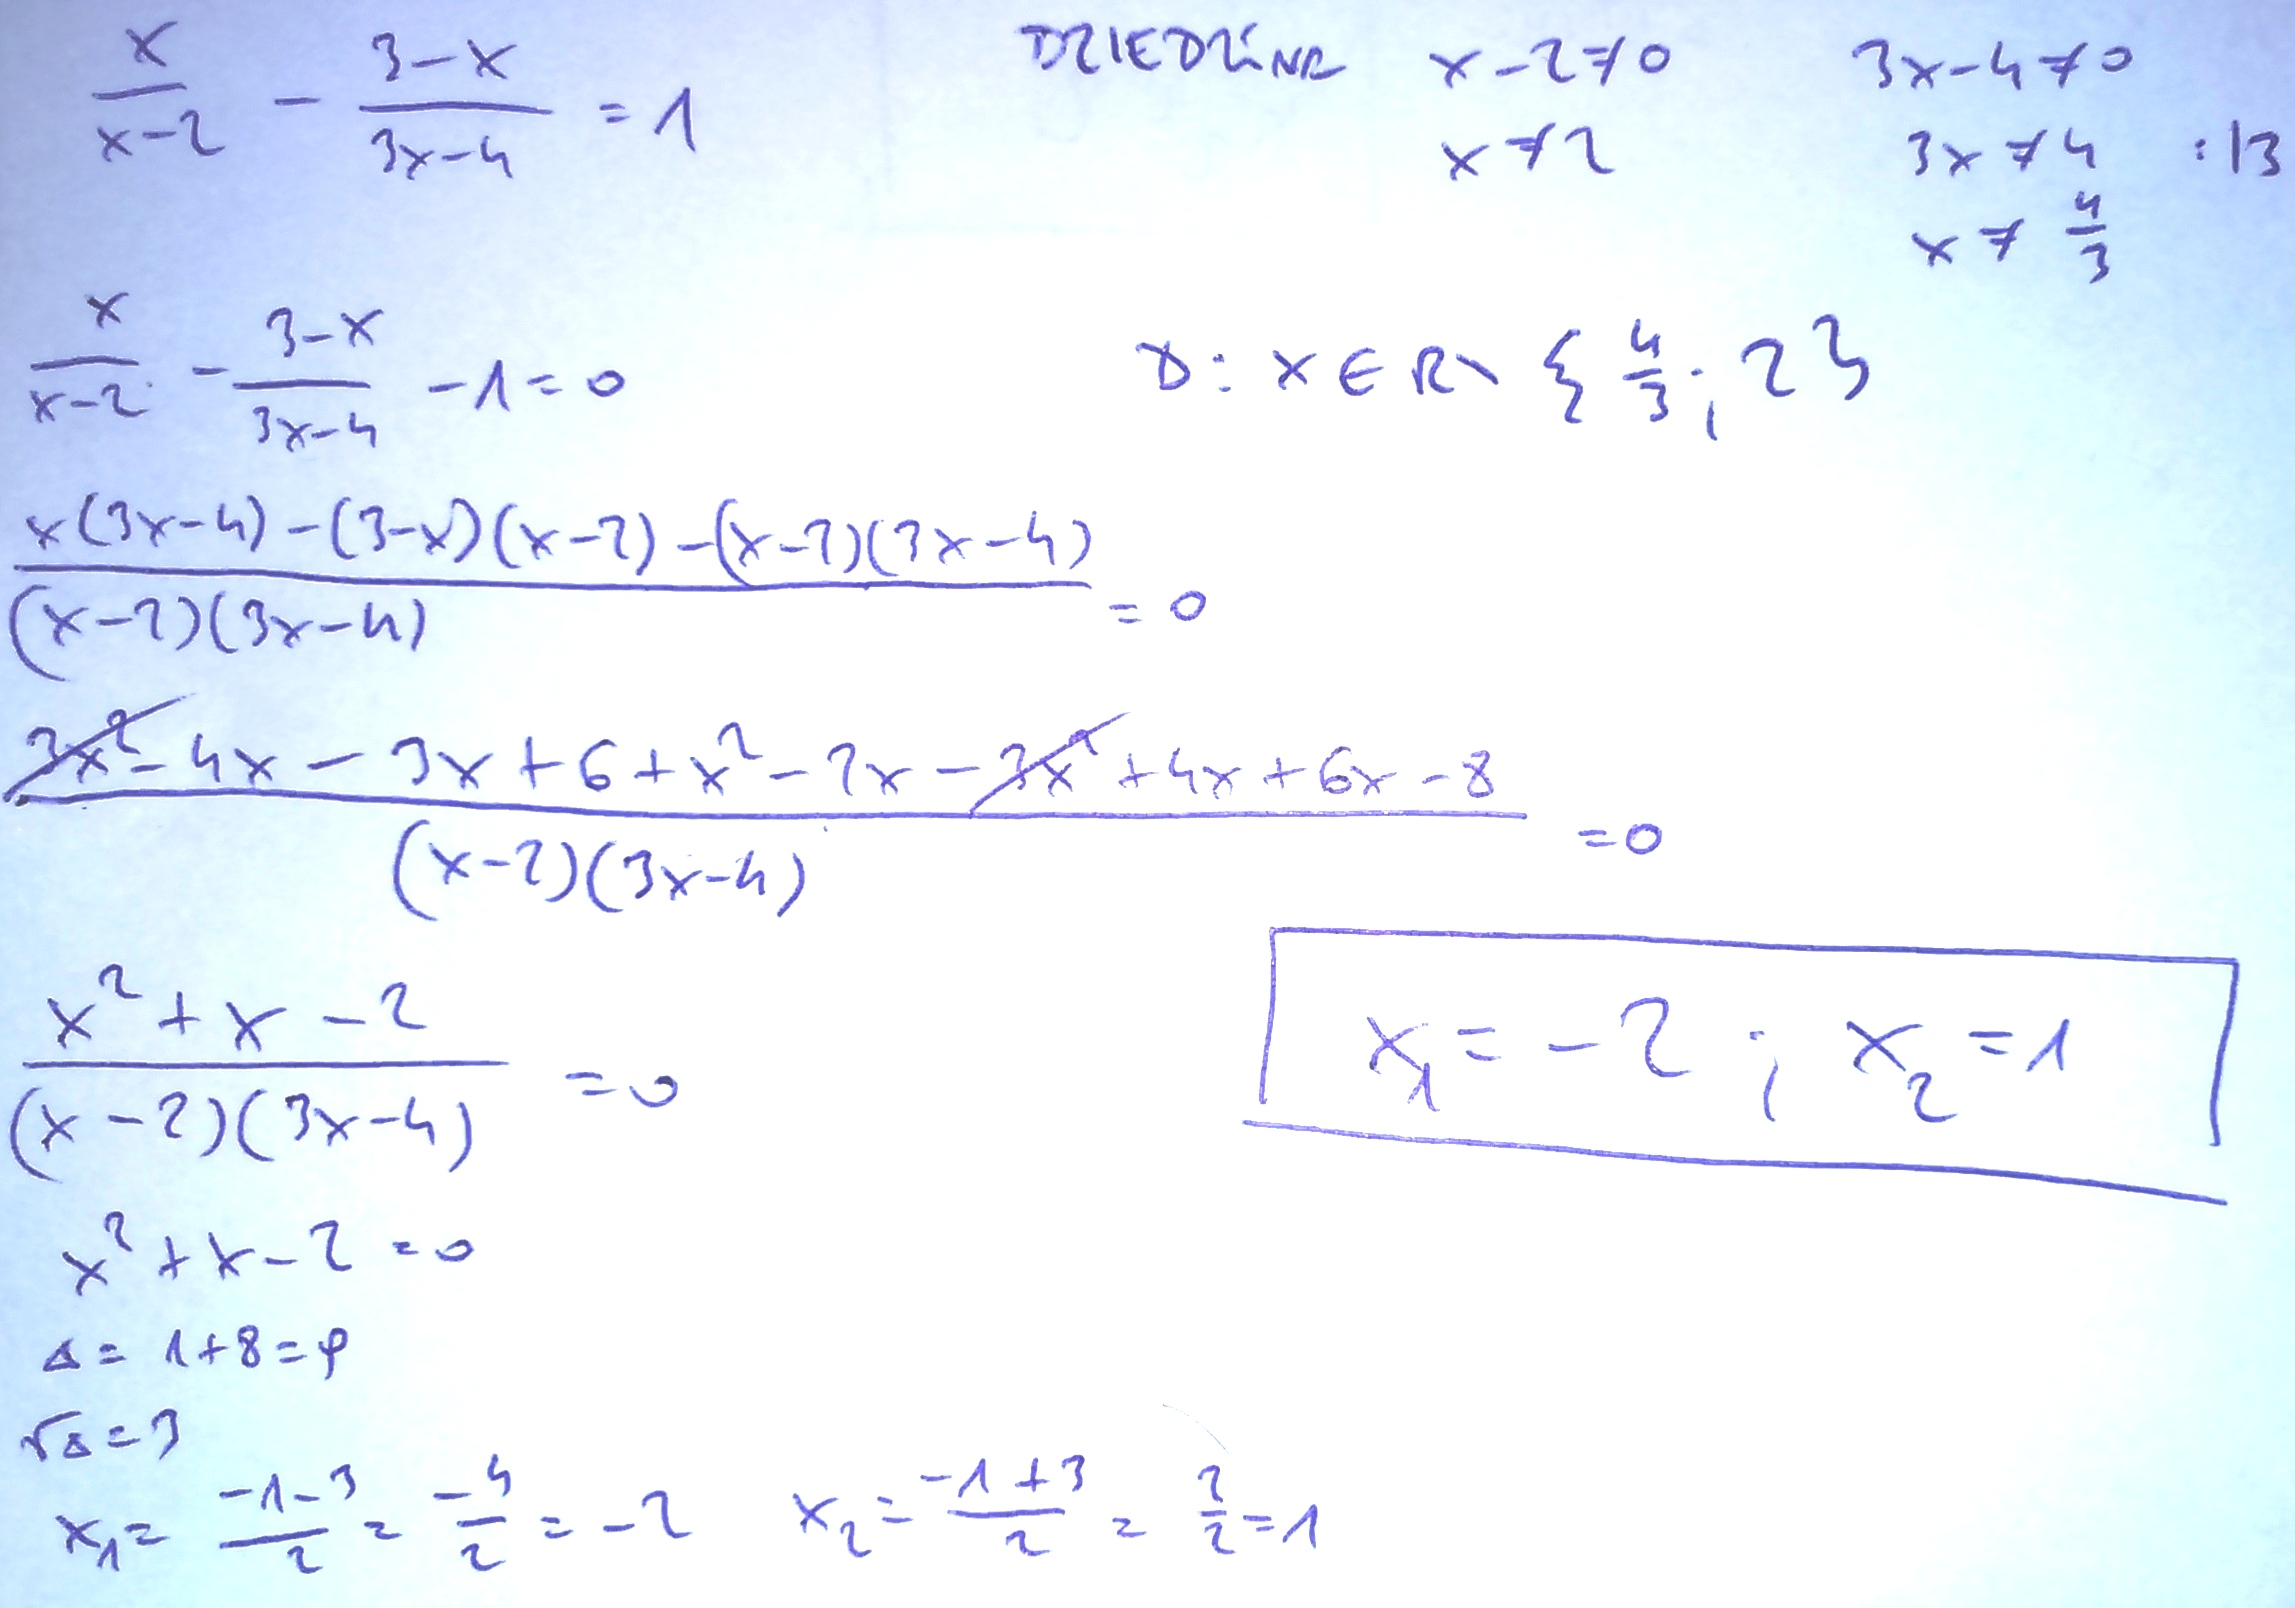 x/(x-2) - (3-x)/(3x-4) = 1
DZIEDZINA x-2≠0 3x-4≠0
x≠2 3x≠4 :|3
x≠4/3
x/(x-2) - (3-x)/(3x-4) -1=0
D: x∈R\{4/3; 2}
(x(3x-4)-(3-x)(x-2)-(x-2)(3x-4))/((x-2)(3x-4)) = 0
(3x²-4x-3x+6+x²-2x-3x²+4x+6x-8)/((x-2)(3x-4)) =0
(x²+x-2)/((x-2)(3x-4)) =0
x₁=-2 ; x₂=1
x²+x-2=0
Δ=1+8=9
√Δ=3
x₁=(-1-3)/2=-4/2=-2 x₂=(-1+3)/2=2/2=1